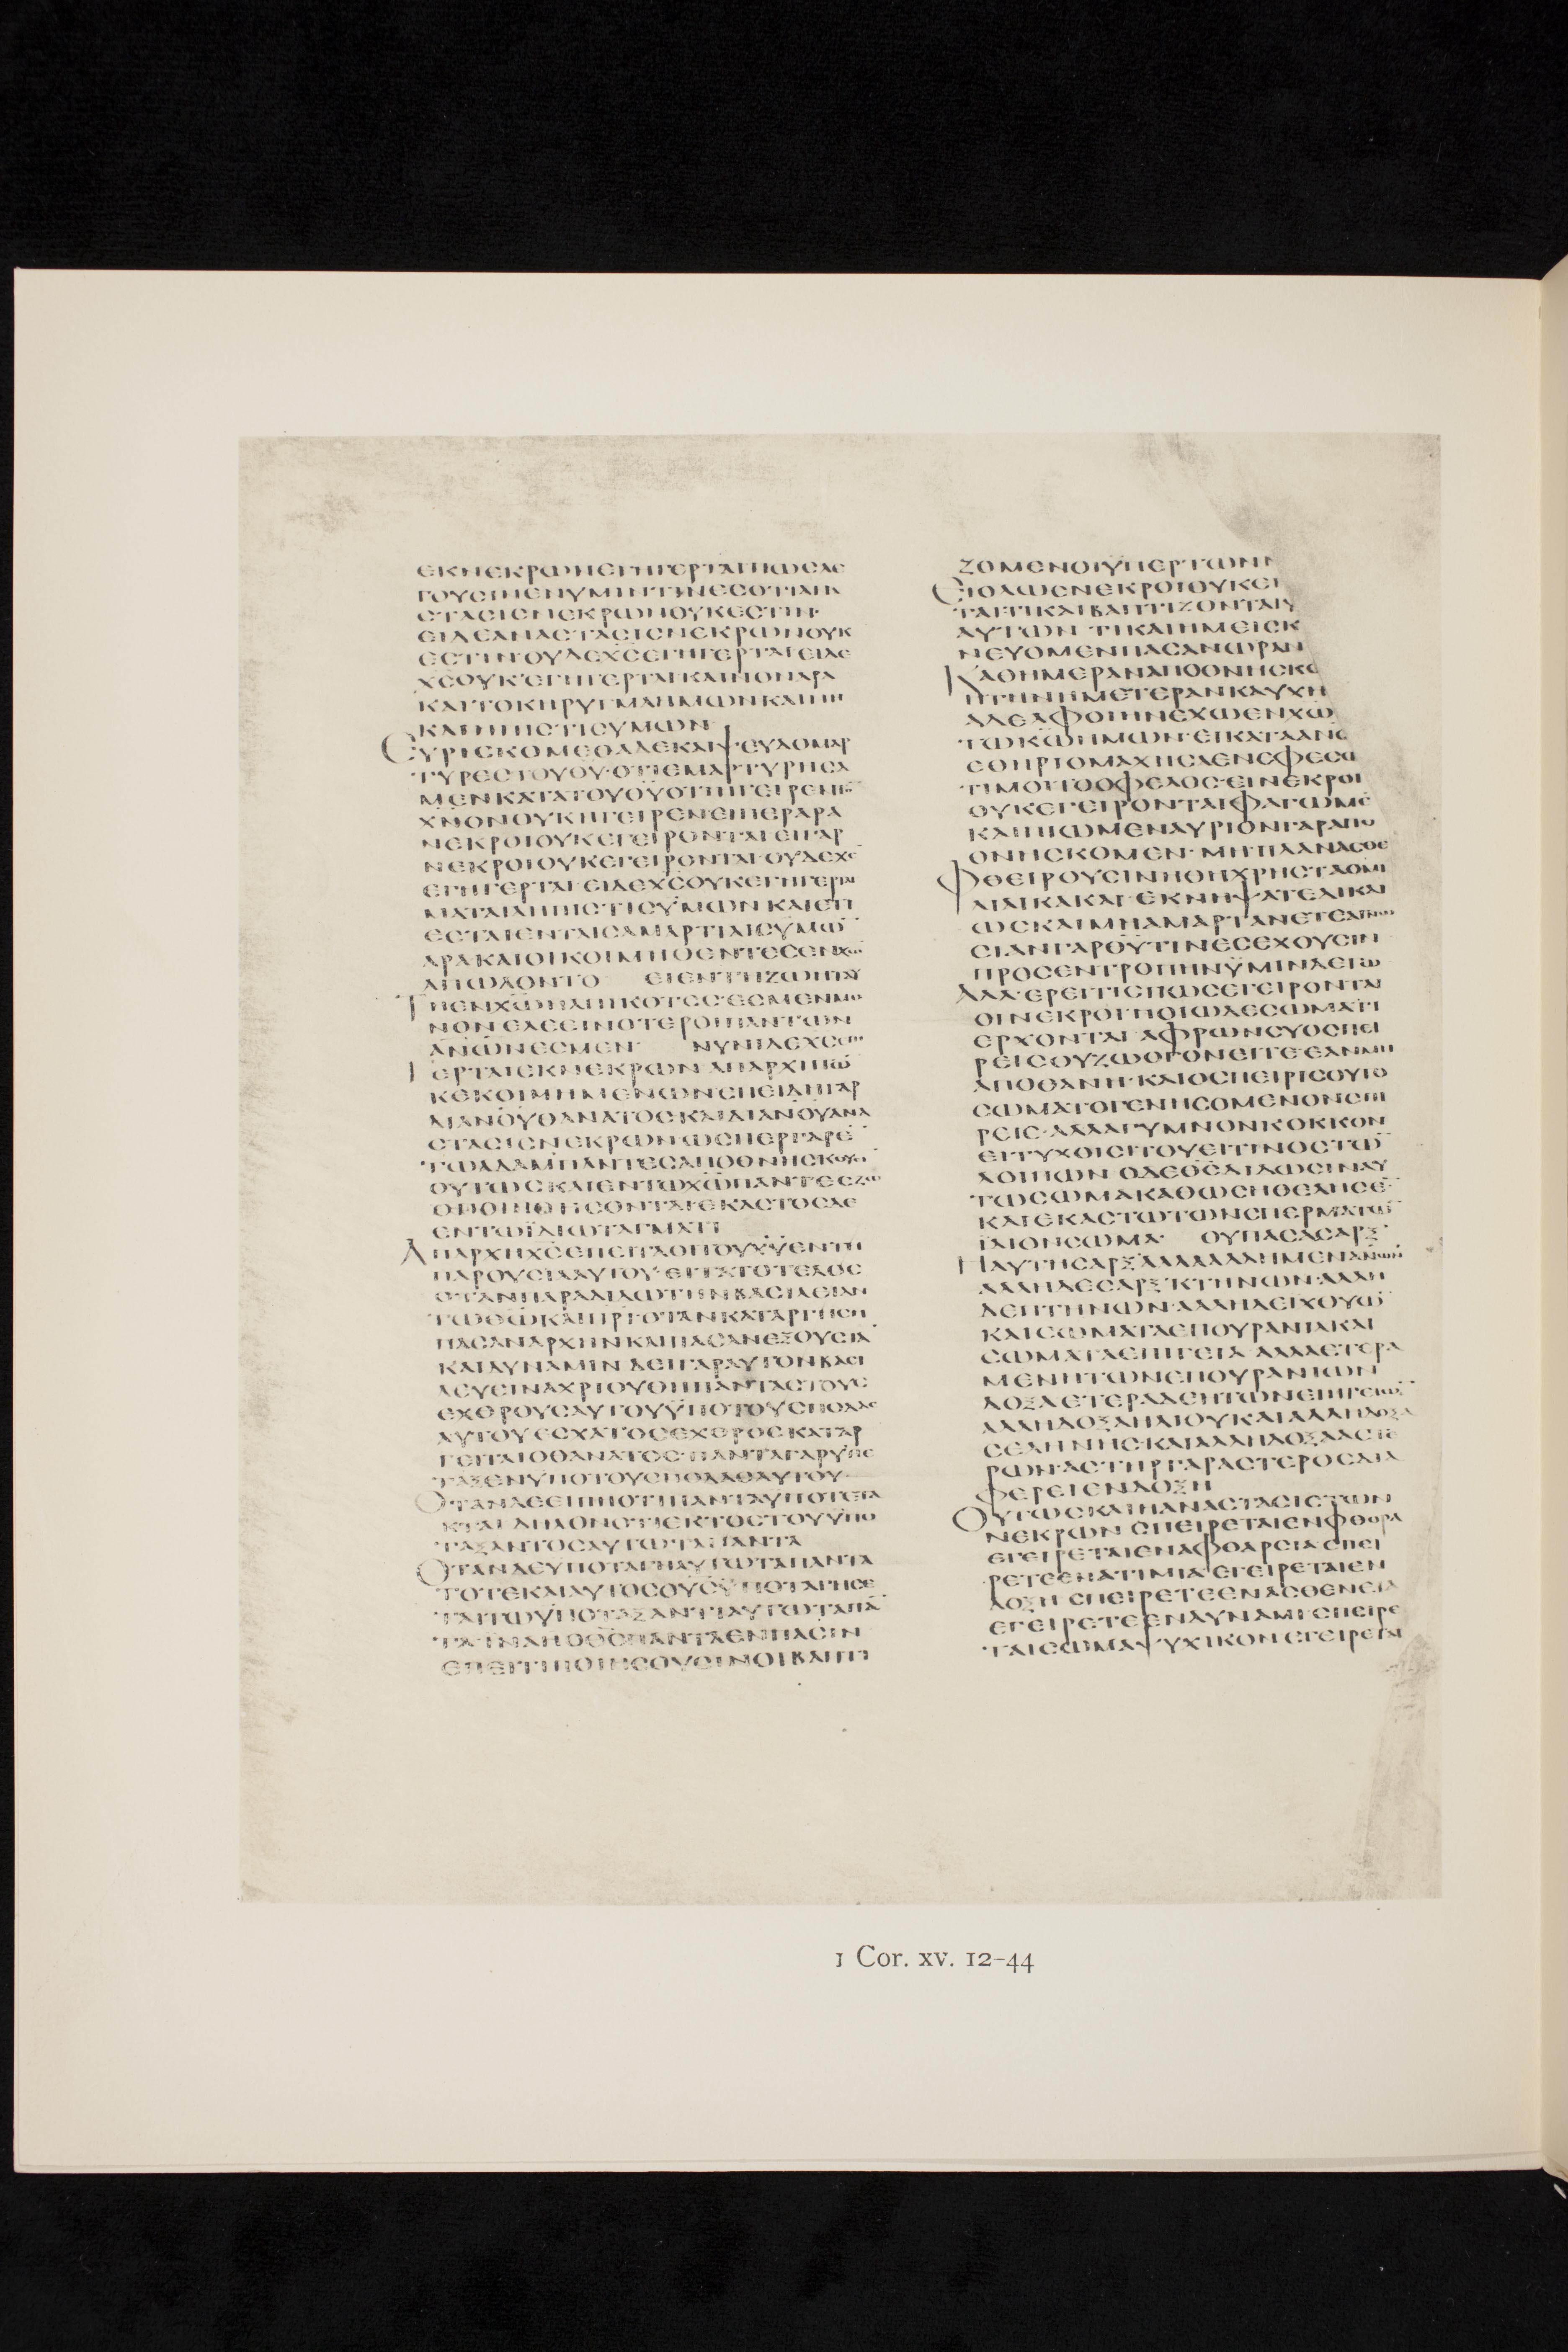 ΕΚΝΕΚΡΩΝΕΓΗΓΕΡΤΑΙΠΩΣΛΕ
ΓΟΥСΙΝΕΝΥΜΙΝΤΙΝΕСΟΤΙΑΝΑ
СΤΑСΙСΝΕΚΡΩΝΟΥΚΕСΤΙΝ·
ΕΙΔΕΑΝΑСΤΑСΙСΝΕΚΡΩΝΟΥΚ
ΕСΤΙΝΟΥΔΕΧС̅ΕΓΗΓΕΡΤΑΙΕΙΔΕ
ΧС̅ΟΥΚΕΓΗΓΕΡΤΑΙΚΑΙΝΟΝΑΡΑ
ΚΑΙΤΟΚΗΡΥΓΜΑΗΜΩΝΚΑΙΝΗ
ΚΑΙΗΠΙСΤΙСΥΜΩΝ
ΕΥΡΙСΚΟΜΕΘΑΔΕΚΑΙΨΕΥΔΟΜΑΡ
ΤΥΡΕСΤΟΥΘΥ̅·ΟΤΙΕΜΑΡΤΥΡΗСΑ
ΜΕΝΚΑΤΑΤΟΥΘΥ̅ΟΤΙΗΓΕΙΡΕΝΤ̅
ΧΝ̅ΟΝΟΥΚΗΓΕΙΡΕΝΕΙΠΕΡΑΡΑ
ΝΕΚΡΟΙΟΥΚΕΓΕΙΡΟΝΤΑΙΕΙΓΑΡ
ΝΕΚΡΟΙΟΥΚΕΓΕΙΡΟΝΤΑΙ·ΟΥΔΕΧС̅
ΕΓΗΓΕΡΤΑΙ·ΕΙΔΕΧС̅ΟΥΚΕΓΗΓΕΡΤΑΙ
ΜΑΤΑΙΑΗΠΙСΤΙСΥΜΩΝΚΑΙΕΤΙ
ΕСΤΑΙΕΝΤΑΙСΑΜΑΡΤΙΑΙСΫΜΩ̅
ΑΡΑΚΑΙΟΙΚΟΙΜΗΘΕΝΤΕСΕΝΧΩ̅
ΑΠΩΛΟΝΤΟ ΕΙΕΝΤΗΖΩΗΤΑΥ
ΤΗΕΝΧΩ̅ΗΛΠΙΚΟΤΕСΕСΜΕΝΜΟ
ΝΟΝΕΛΕΕΙΝΟΤΕΡΟΙΠΑΝΤΩΝ
ΑΝΩ̅ΝΕСΜΕΝ· ΝΥΝΙΔΕΧС̅ΕΓΗ
ΓΕΡΤΑΙΕΚΝΕΚΡΩΝΑΠΑΡΧΗΤΩ̅
ΚΕΚΟΙΜΗΜΕΝΩΝΕΠΕΙΔΗΓΑΡ
ΔΙΑΝΟΥ̅ΘΑΝΑΤΟСΚΑΙΔΙΑΝΟΥ̅ΑΝΑ
СΤΑСΙСΝΕΚΡΩΝΩСΠΕΡΓΑΡΕ̅
ΤΩΑΔΑΜΠΑΝΤΕСΑΠΟΘΝΗСΚΟΥСΙ̅
ΟΥΤΩСΚΑΙΕΝΤΩΧΩ̅ΠΑΝΤΕСΖΩ
ΟΠΟΙΗΘΗСΟΝΤΑΙ·ΕΚΑСΤΟСΔΕ
ΕΝΤΩΪΔΙΩΤΑΓΜΑΤΙ
ΑΠΑΡΧΗΧС̅ΕΠΕΙΤΑΟΙΤΟΥΧΥ̅ΕΝΤΗ
ΠΑΡΟΥСΙΑΑΥΤΟΥ·ΕΙΤΑΤΟΤΕΛΟС
ΟΤΑΝΠΑΡΑΔΙΔΩΤΗΝΒΑСΙΛΕΙΑΝ
ΤΩΘΩ̅ΚΑΙΠΡΙ̅ΟΤΑΝΚΑΤΑΡΓΗСΗ
ΠΑСΑΝΑΡΧΗΝΚΑΙΠΑСΑΝΕΞΟΥСΙΑ̅
ΚΑΙΔΥΝΑΜΙΝΔΕΙΓΑΡΑΥΤΟΝΒΑСΙ
ΛΕΥΕΙΝΑΧΡΙΟΥΘΗΠΑΝΤΑСΤΟΥС
ΕΧΘΡΟΥСΑΥΤΟΥΫΠΟΤΟΥСΠΟΔΑС
ΑΥΤΟΥΕСΧΑΤΟСΕΧΘΡΟСΚΑΤΑΡ
ΓΕΙΤΑΙΟΘΑΝΑΤΟС·ΠΑΝΤΑΓΑΡΫΠΕ
ΤΑΞΕΝΥΠΟΤΟΥСΠΟΔΑСΑΥΤΟΥ
ΟΤΑΝΔΕΕΙΠΗΟΤΙΠΑΝΤΑΫΠΟΤΕΤΑ
ΚΤΑΙΔΗΛΟΝΟΤΙΕΚΤΟСΤΟΥΫΠΟ
ΤΑΞΑΝΤΟСΑΥΤΩΤΑΠΑΝΤΑ
ΟΤΑΝΔΕΥΠΟΤΑΓΗΑΥΤΩΤΑΠΑΝΤΑ
ΤΟΤΕΚΑΙΑΥΤΟСΟΥС̅ΫΠΟΤΑΓΗСΕ
ΤΑΙΤΩΫΠΟΤΑΞΑΝΤΙΑΥΤΩΤΑΠΑ̅
ΤΑΪΝΑΗΟΘС̅ΠΑΝΤΑΕΝΠΑСΙΝ
ΕΠΕΙΤΙΠΟΙΗСΟΥСΙΝΟΙΒΑΠΤΙ
ΖΟΜΕΝΟΙΫΠΕΡΤΩΝΝ
ΕΙΟΛΩСΝΕΚΡΟΙΟΥΚΕΓΙ
ΤΑΙΤΙΚΑΙΒΑΠΤΙΖΟΝΤΑΙΥ
ΑΥΤΩΝ ΤΙΚΑΙΗΜΕΙСΚ
ΝΕΥΟΜΕΝΠΑСΑΝΩΡΑΝ
ΚΑΘΗΜΕΡΑΝΑΠΟΘΝΗСΚΩ
ΝΤΗΝΗΜΕΤΕΡΑΝΚΑΥΧΗ
ΑΔΕΛΦΟΙΗΝΕΧΩΕΝΧΩ̅
ΤΩΚΩ̅ΗΜΩΝ·ΕΙΚΑΤΑΑΝΟ
ΕΘΗΡΙΟΜΑΧΗСΑΕΝΕΦΕСΩ
ΤΙΜΟΙΤΟΟΦΕΛΟС·ΕΙΝΕΚΡΟΙ
ΟΥΚΕΓΕΙΡΟΝΤΑΙΦΑΓΩΜΕ̅
ΚΑΙΠΙΩΜΕΝΑΥΡΙΟΝΓΑΡΑΠΟ
ΘΝΗСΚΟΜΕΝ·ΜΗΠΛΑΝΑСΘΕ
ΦΘΕΙΡΟΥСΙΝΗΘΗΧΡΗСΤΑΟΜΙ
ΛΙΑΙΚΑΚΑΙ·ΕΚΝΗΨΑΤΕΔΙΚΑΙ
ΩСΚΑΙΜΗΑΜΑΡΤΑΝΕΤΕΑΓΝΩ
СΙΑΝΓΑΡΘΥ̅ΤΙΝΕСΕΧΟΥСΙΝ
ΠΡΟСΕΝΤΡΟΠΗΝΫΜΙΝΛΕΓΩ
ΑΛΛΕΡΕΙΤΙСΠΩСΕΓΕΙΡΟΝΤΑΙ
ΟΙΝΕΚΡΟΙ·ΠΟΙΩΔΕСΩΜΑΤΙ
ΕΡΧΟΝΤΑΙ·ΑΦΡΩΝСΥΟСΠΕΙ
ΡΕΙСΟΥΖΩΟΓΟΝΕΙΤΕ·ΕΑΝΜΗ
ΑΠΟΘΑΝΗ·ΚΑΙΟСΠΕΙΡΙСΟΥΤΟ
СΩΜΑΤΟΓΕΝΗСΟΜΕΝΟΝСΠΙ
ΡΕΙС·ΑΛΛΑΓΥΜΝΟΝΚΟΚΚΟΝ
ΕΙΤΥΧΟΙСΙΤΟΥΕΙΤΙΝΟСΤΩ̅
ΛΟΙΠΩΝΟΔΕΘС̅ΔΙΔΩСΙΝΑΥ
ΤΩСΩΜΑΚΑΘΩСΗΘΕΛΗСΕ̅
ΚΑΙΕΚΑСΤΩΤΩΝСΠΕΡΜΑΤΩ̅
ΪΔΙΟΝСΩΜΑ· ΟΥΠΑСΑСΑΡΞ
ΗΑΥΤΗСΑΡΞΑΛΛΑΑΛΛΗΜΕΝΑΝΩ̅Ν
ΑΛΛΗΔΕСΑΡΞΚΤΗΝΩΝ·ΑΛΛΗ
ΔΕΠΤΗΝΩΝ·ΑΛΛΗΔΕΙΧΘΥΩ̅
ΚΑΙСΩΜΑΤΑΕΠΟΥΡΑΝΙΑΚΑΙ
СΩΜΑΤΑΕΠΙΓΕΙΑ·ΑΛΛΑΕΤΕΡΑ
ΜΕΝΗΤΩΝΕΠΟΥΡΑΝΙΩΝ
ΔΟΞΑΕΤΕΡΑΔΕΗΤΩΝΕΠΙΓΕΙΩ̅
ΑΛΛΗΔΟΞΑΗΛΙΟΥΚΑΙΑΛΛΗΔΟΞΑ
СΕΛΗΝΗС·ΚΑΙΑΛΛΗΔΟΞΑΑСΤΕ
ΡΩΝ·ΑСΤΗΡΓΑΡΑСΤΕΡΟСΔΙΑ
ΦΕΡΕΙΕΝΔΟΞΗ
ΟΥΤΩСΚΑΙΗΑΝΑСΤΑСΙСΤΩΝ
ΝΕΚΡΩΝСΠΕΙΡΕΤΑΙΕΝΦΘΟΡΑ
ΕΓΕΙΡΕΤΑΙΕΝΑΦΘΑΡСΙΑСΠΕΙ
ΡΕΤΕΕΝΑΤΙΜΙΑΕΓΕΙΡΕΤΑΙΕΝ
ΔΟΞΗСΠΕΙΡΕΤΕΕΝΑСΘΕΝΕΙΑ
ΕΓΕΙΡΕΤΕΕΝΔΥΝΑΜΙСΠΕΙΡΕ
ΤΑΙСΩΜΑΨΥΧΙΚΟΝΕΓΕΙΡΕΤΑΙ
1 Cor. xv. 12–44